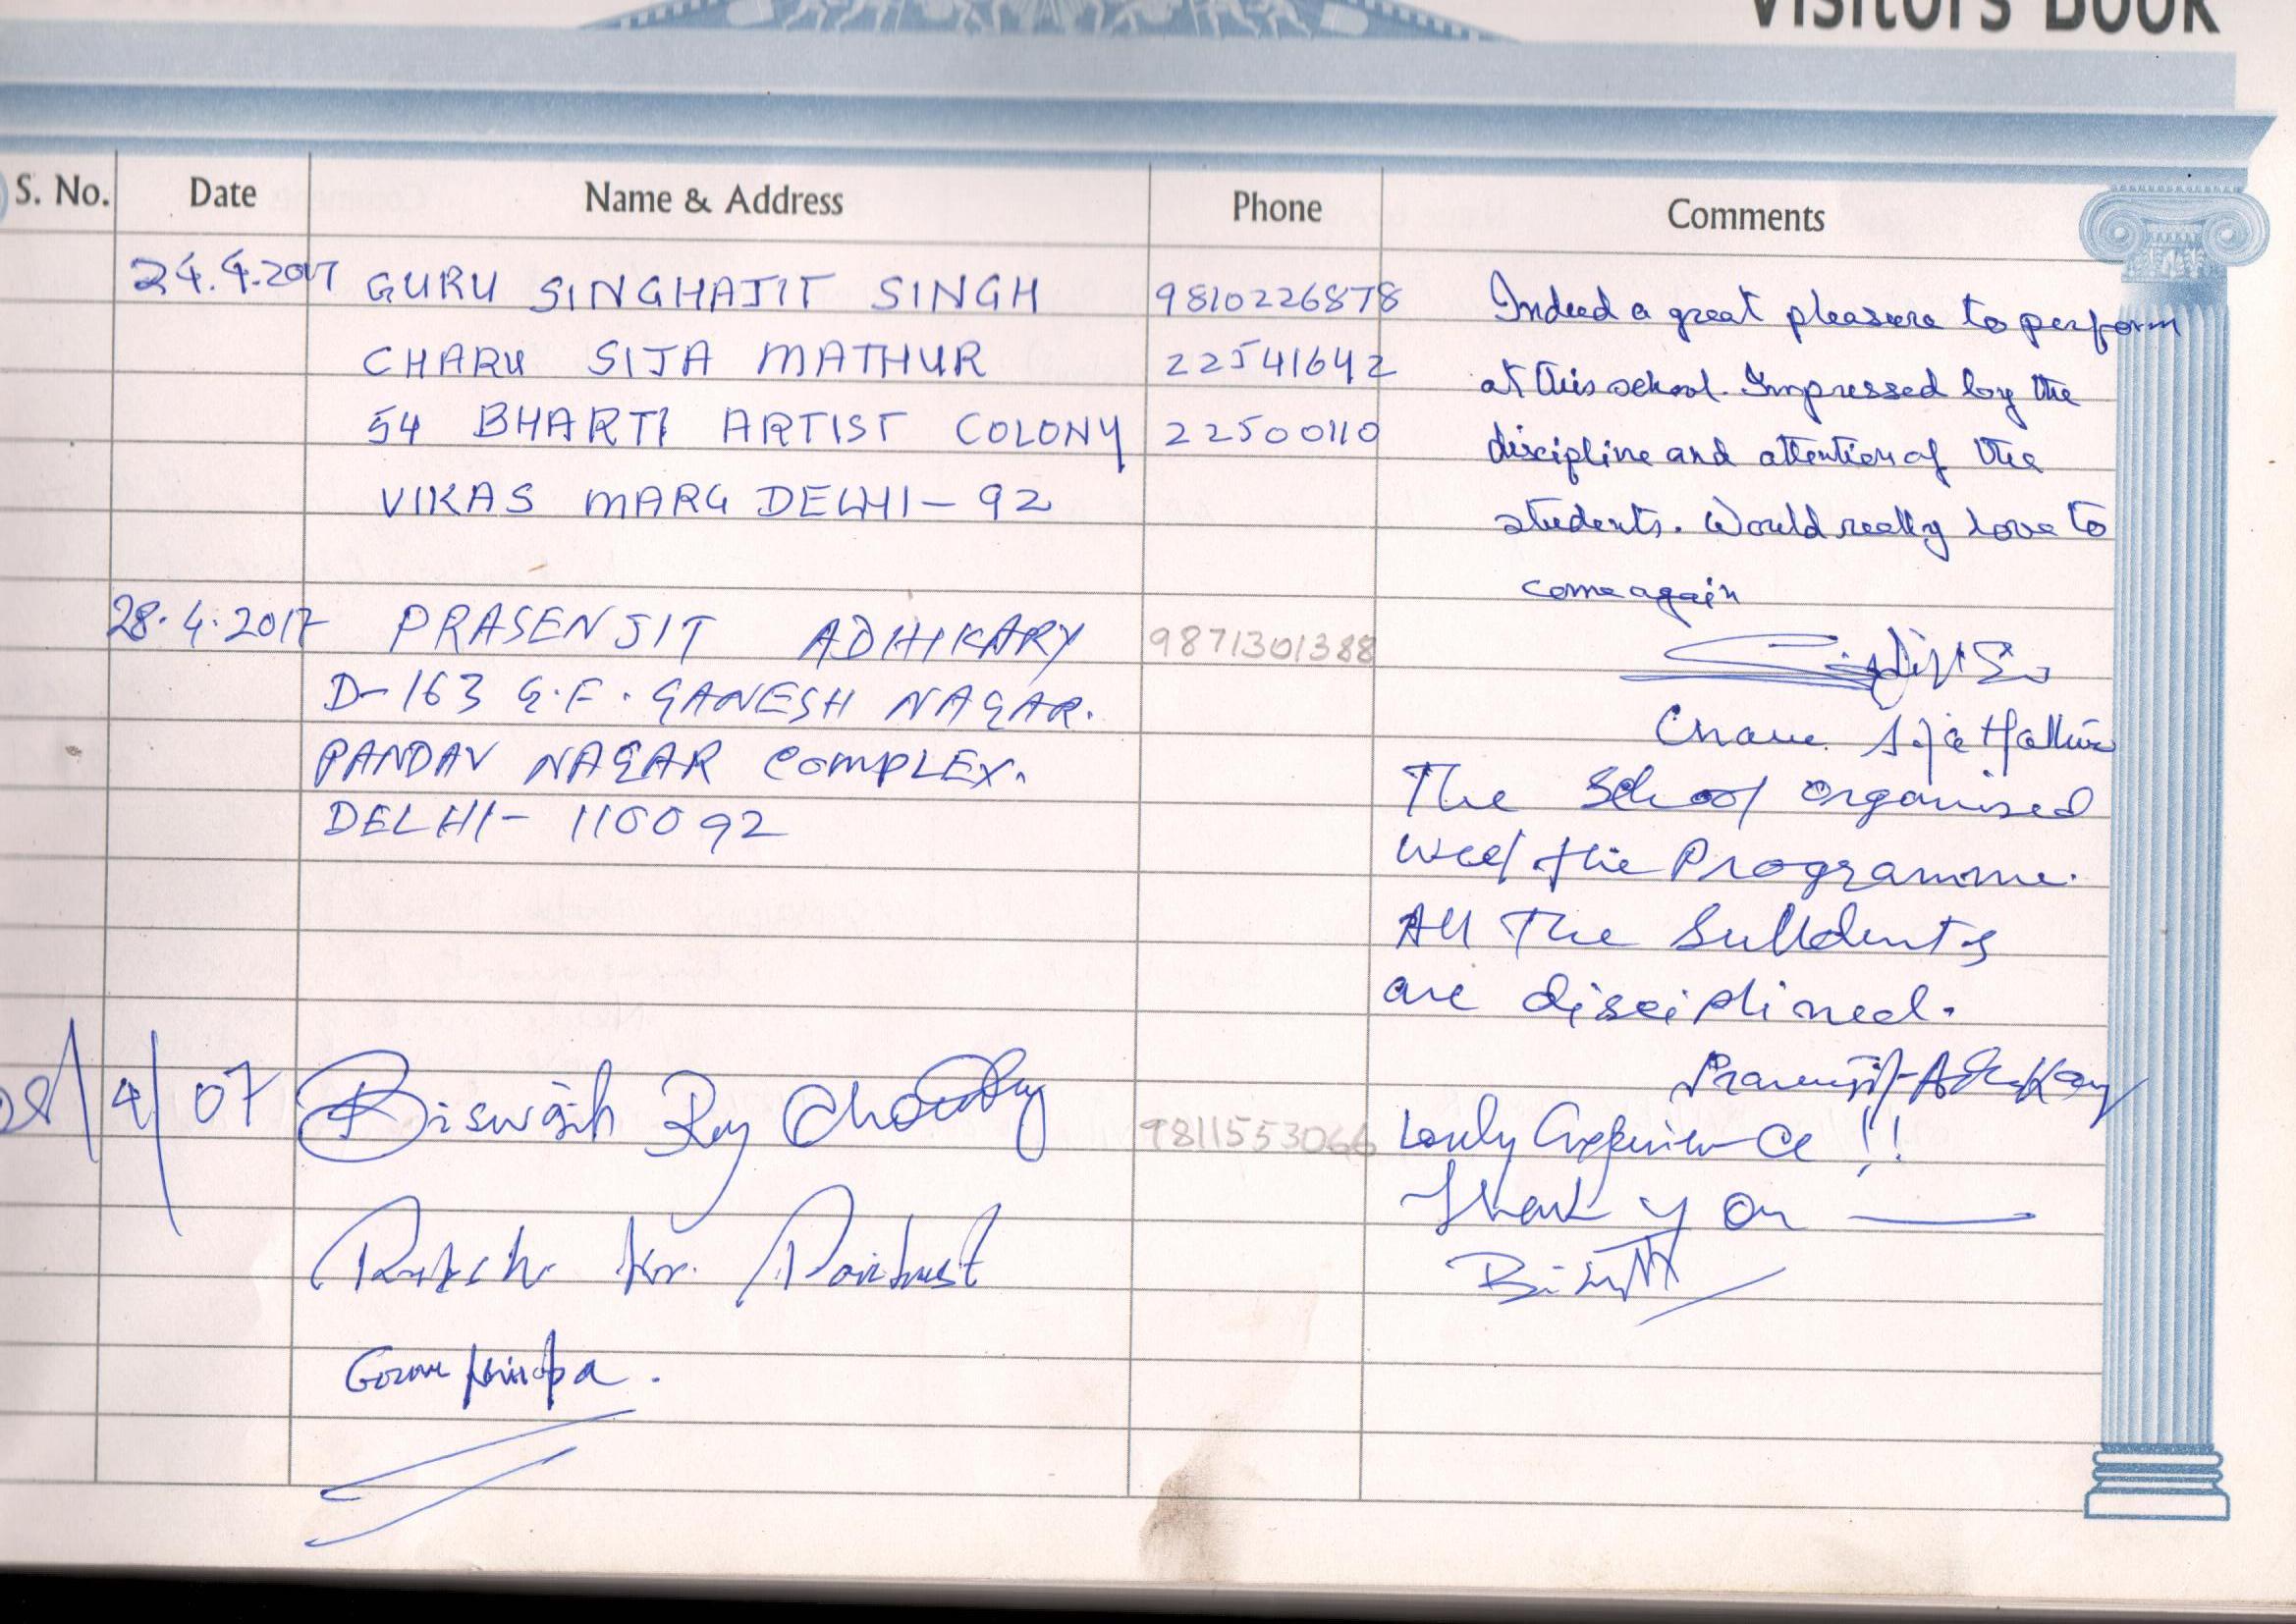 Visitors Book
S. No. Date Name & Address Phone Comments
24.4.2017 GURU SINGHAJIT SINGH 9810226878 Indeed a great pleasure to perform
CHARU SIJA MATHUR 22541642 at this school. Impressed by the
54 BHARTI ARTIST COLONY 22500110 discipline and attention of the
VIKAS MARG DELHI-92 students. Would really love to
come again
28.4.2017 PRASENJIT ADHIKARY 9871301388
D-163 G.F. GANESH NAGAR.
PANDAV NAGAR COMPLEX.
DELHI-110092
Charu Sija Mathur
The School organised
well the Programme.
All The Sulldents
are disciplined.
Prasenjit Adhikary
28/4/07 Biswajit Roy Chowdhury 9811553066 Lovely Experience !!
Thank you
Kr.